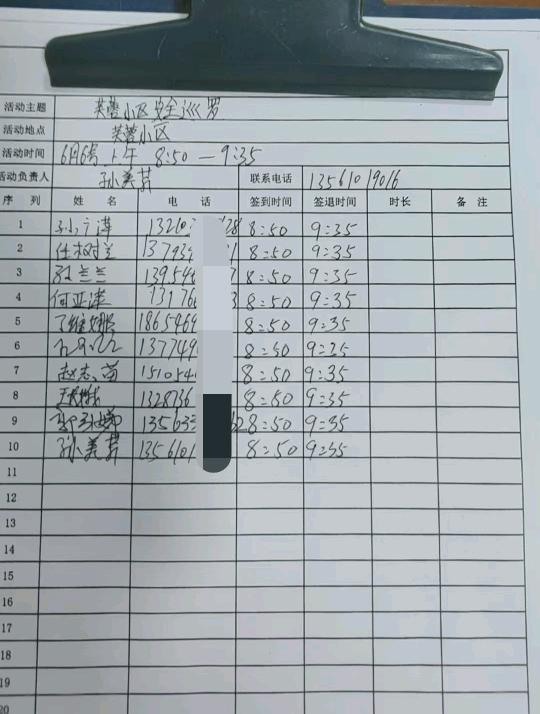 活动主题 芙蓉小区安全巡罗
活动地点 芙蓉小区
活动时间 6月6号上午 8:50 — 9:35
活动负责人 孙美芹 联系电话 13561019016
序 列 姓 名 电 话 签到时间 签退时间 时长 备 注
1 13210 28 8:50 9:35
2 任树兰 13793 1 8:50 9:35
3 兰兰 139546 8:50 9:35
4 何亚 13176 3 8:50 9:35
5 1865469 8:50 9:35
6 137749 8:50 9:35
7 赵志苗 151054 8:50 9:35
8 1328736 8:50 9:35
9 135633 2 8:50 9:35
10 孙美芹 1356101 8:50 9:35
11
12
13
14
15
16
17
18
19
20